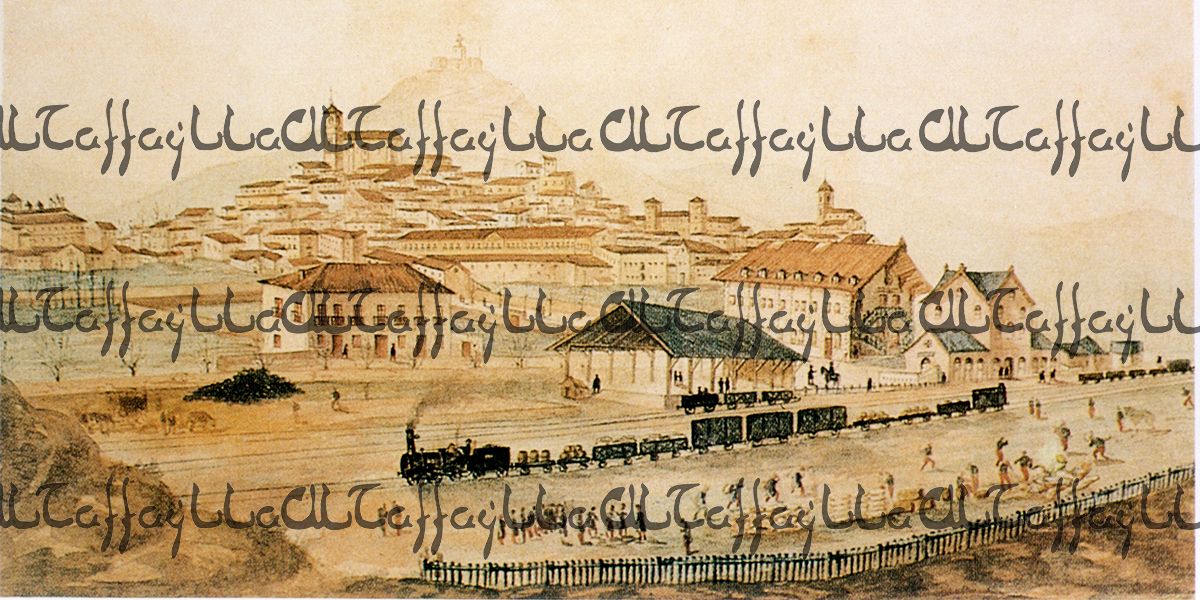 alTaffayllaalTaffayllaalTaffayllaalTaffaylla
alTaffayllaalTaffayllaalTaffayllaalTaffaylla
alTaffayllaalTaffayllaalTaffayllaalTaffaylla